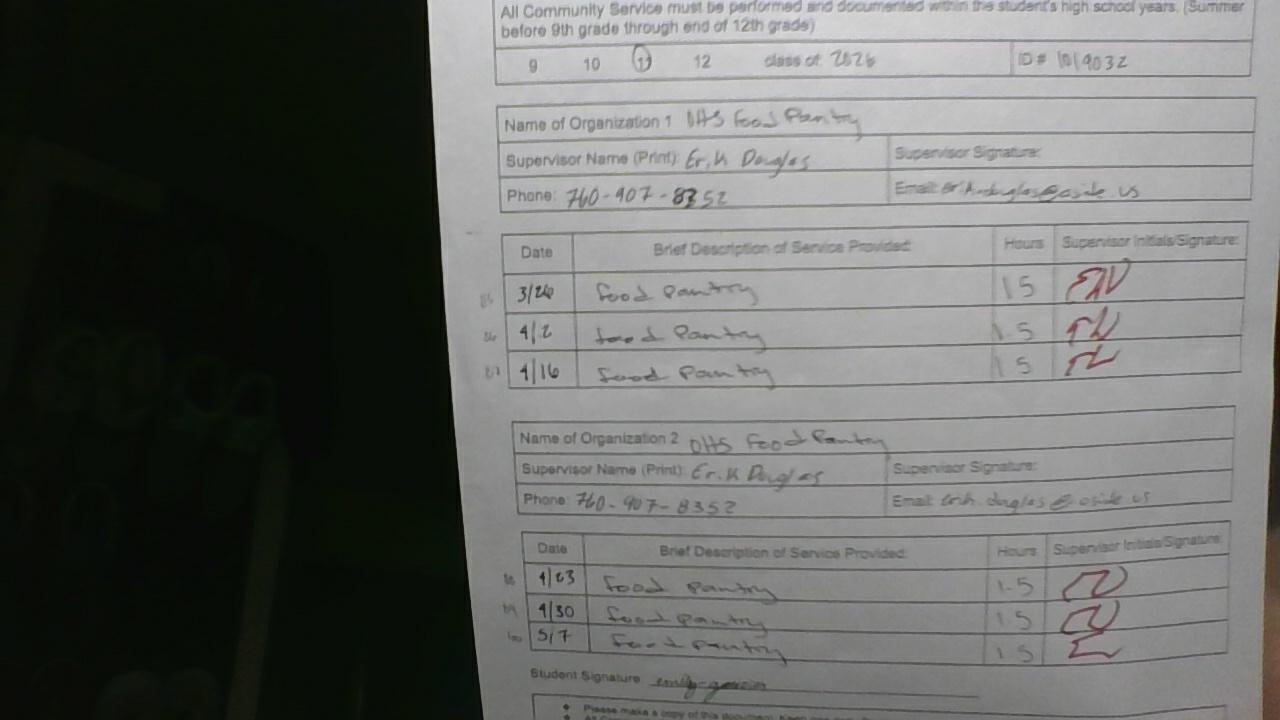 All Community Service must be performed and documented within the student's high school years. (Summer
before 9th grade through end of 12th grade)
9 10 11 12 class of: 2026 ID # 1019032
Name of Organization 1 OHS Food Pantry
Supervisor Name (Print): Erik Douglas Supervisor Signature:
Phone: 760-907-8352 Email:
Date Brief Description of Service Provided: Hours Supervisor Initials/Signature:
3/26 food pantry 1.5
4/2 food pantry 1.5
4/16 food pantry 1.5
Name of Organization 2 OHS Food Pantry
Supervisor Name (Print): Erik Douglas Supervisor Signature:
Phone: 760-907-8352 Email: erik.douglas@oside.us
Date Brief Description of Service Provided: Hours Supervisor Initials/Signature:
4/23 food pantry 1.5
4/30 food pantry 1.5
5/7 food pantry 1.5
Student Signature
Please make a copy of this document.